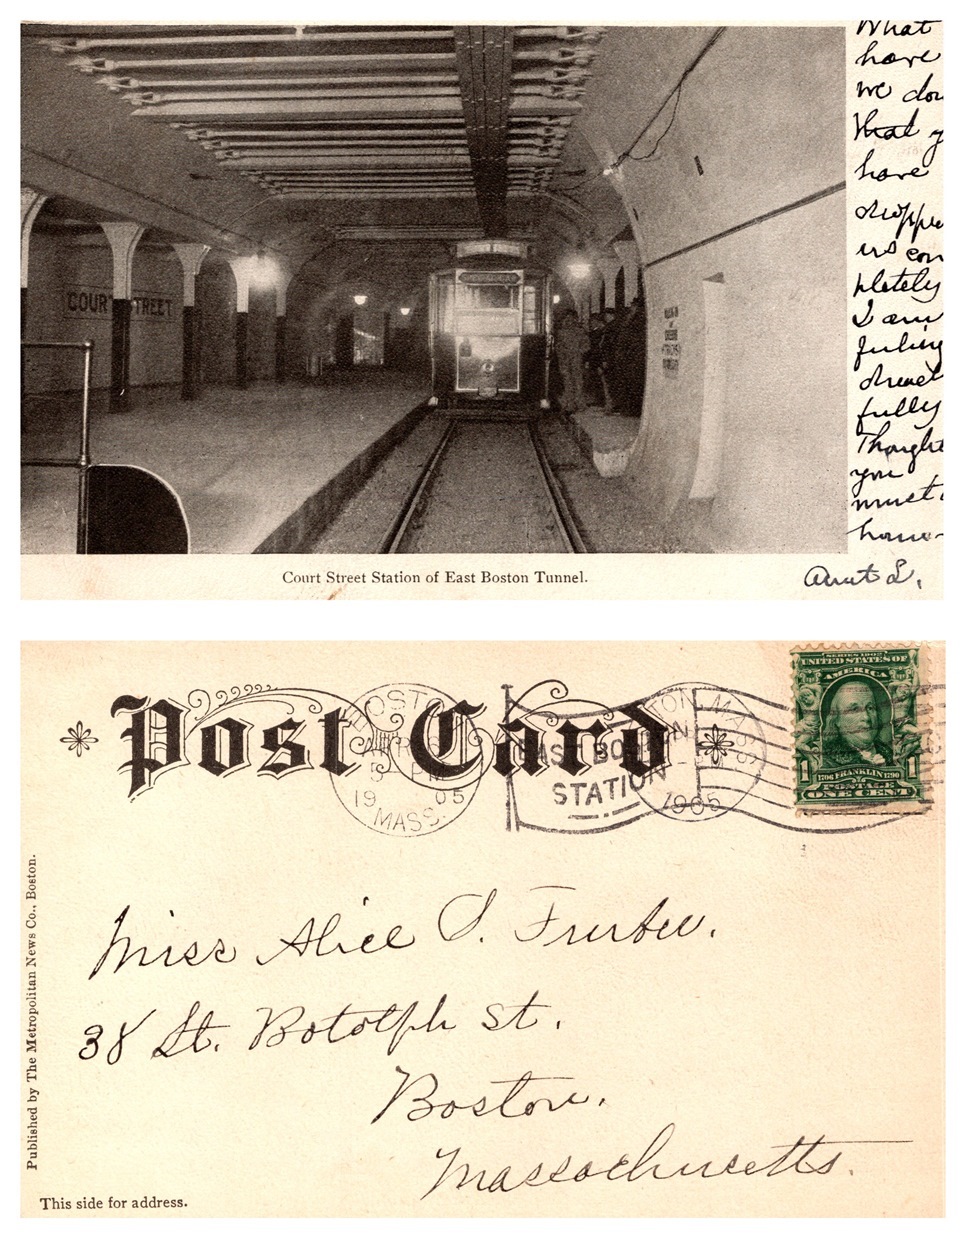 What
have
we don
that y
have
droppe
us com
pletely
I am
feeling
dread
fully
Thought
you
must
have
COURT STREET
Court Street Station of East Boston Tunnel.
Aunt L.
Post Card
BOSTON
5 PM
19 05
MASS.
EAST BOSTON
STATION
BOSTON, MASS.
1905
SERIES 1902
UNITED STATES OF
AMERICA
1706 FRANKLIN 1790
1 POSTAGE 1
ONE CENT
Miss Alice S. Furber.
38 St. Botolph St.
Boston.
Massachusetts.
Published by The Metropolitan News Co., Boston.
This side for address.